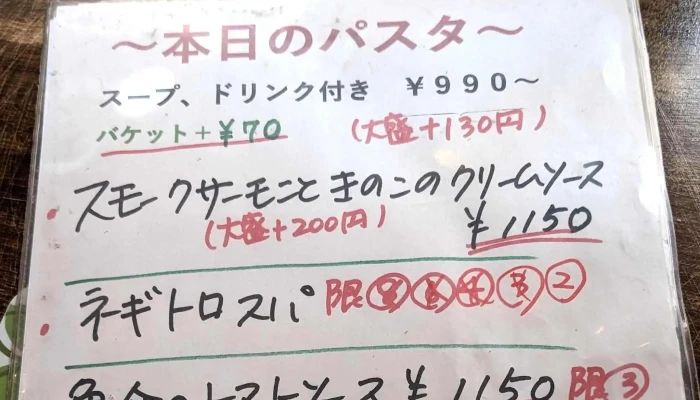 ～本日のパスタ～
スープ、ドリンク付き ￥９９０～
バケット＋￥70 (大盛+130円)
・スモークサーモンときのこのクリームソース
(大盛+200円) ¥1150
・ネギトロスパ 限 ②
トマトソース ¥1150 限③